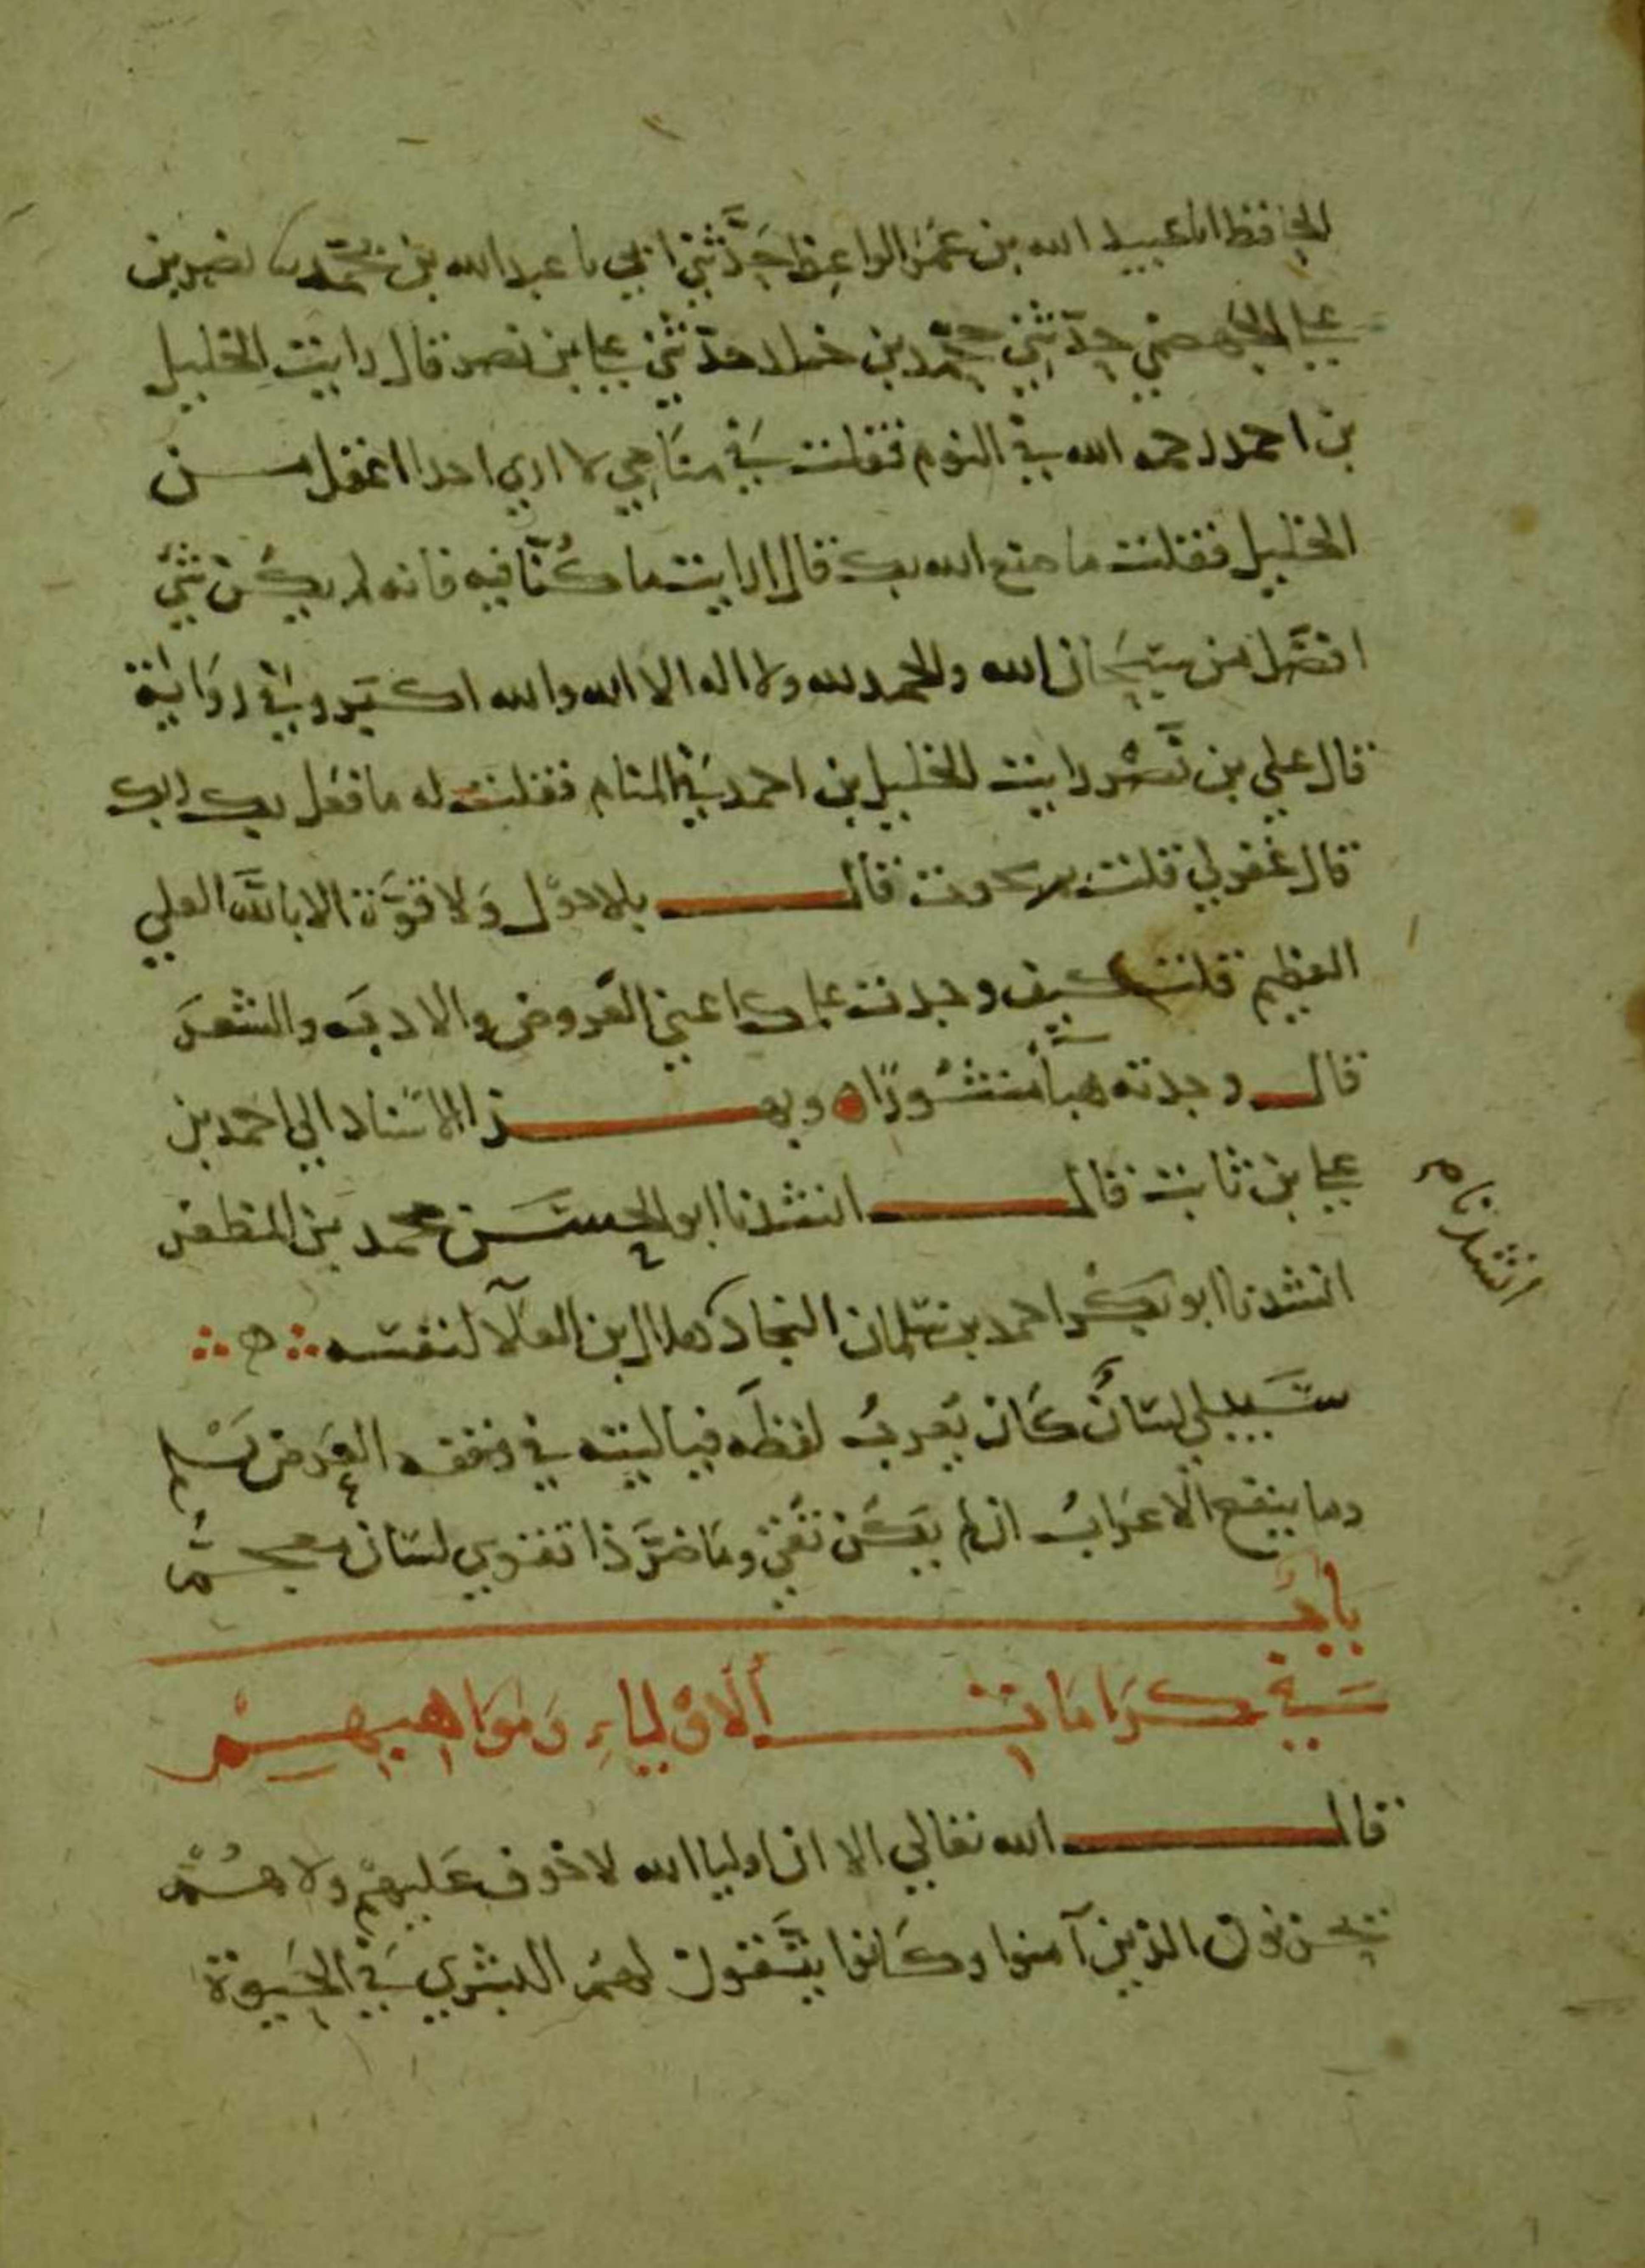 الحافظ انا عبيد الله بن عمر الواعظ حَدَّثني ابي نا عبد الله بن محمّد نا نصر بن
علي الجَهضمي حدّثني محمّد بن خلد حدّثني علي بن نصر قال رايت الخليل
بن احمد رحمه الله في النوم فقلت في منَامي لا اري احدا اعقل من
الخليل فقلت ما صنع الله بك قال ارايت ما كُنّا فيه فانه لم يكُن شيٌ
افضَل من سبحَان الله والحمد لله ولا اله الا الله والله اكبَر وفي روَاية
قال علي بن نَصْر رايت الخليل بن احمد في المنام فقلت له ما فعَل بك ربك
قال غفر لي قلت بم نجوت قال بلا حوْل وَلا قوَّة الا باللّه العلي
العظيم قلت كيف وجدت علمك اعني العَروض والادبَ والشعرَ
قال وجدته هبآً منثُورًا ه وبهذا الاسْنَاد الي احمد بن
علي بن ثابت قال انشدنا ابو الحسَن محمد بن المظفر
انشدنا ابو بكْر احمد بن سَلمان النجاد لهلال بن العَلآ لنفسه ه
سَيبلي لسَانٌ كَان يُعربُ لفظَه فيا ليته في وقفه العَرض يَسْلم
وما ينفع الاعرَابُ ان لم يَكن تُقيً ومَا ضَرَّ ذا تقوي لسَان معجمُ
انشدنا م
بَابُ
في كرَامَات الاوْليَاءِ وَمَوَاهِبهِمْ
قال الله تعالي الا ان اوليا الله لا خوف عَليهمْ ولا هُمْ
يحزنون الذين آمنوا وكَانوا يتَّقون لهمُ البشري في الحَيوة